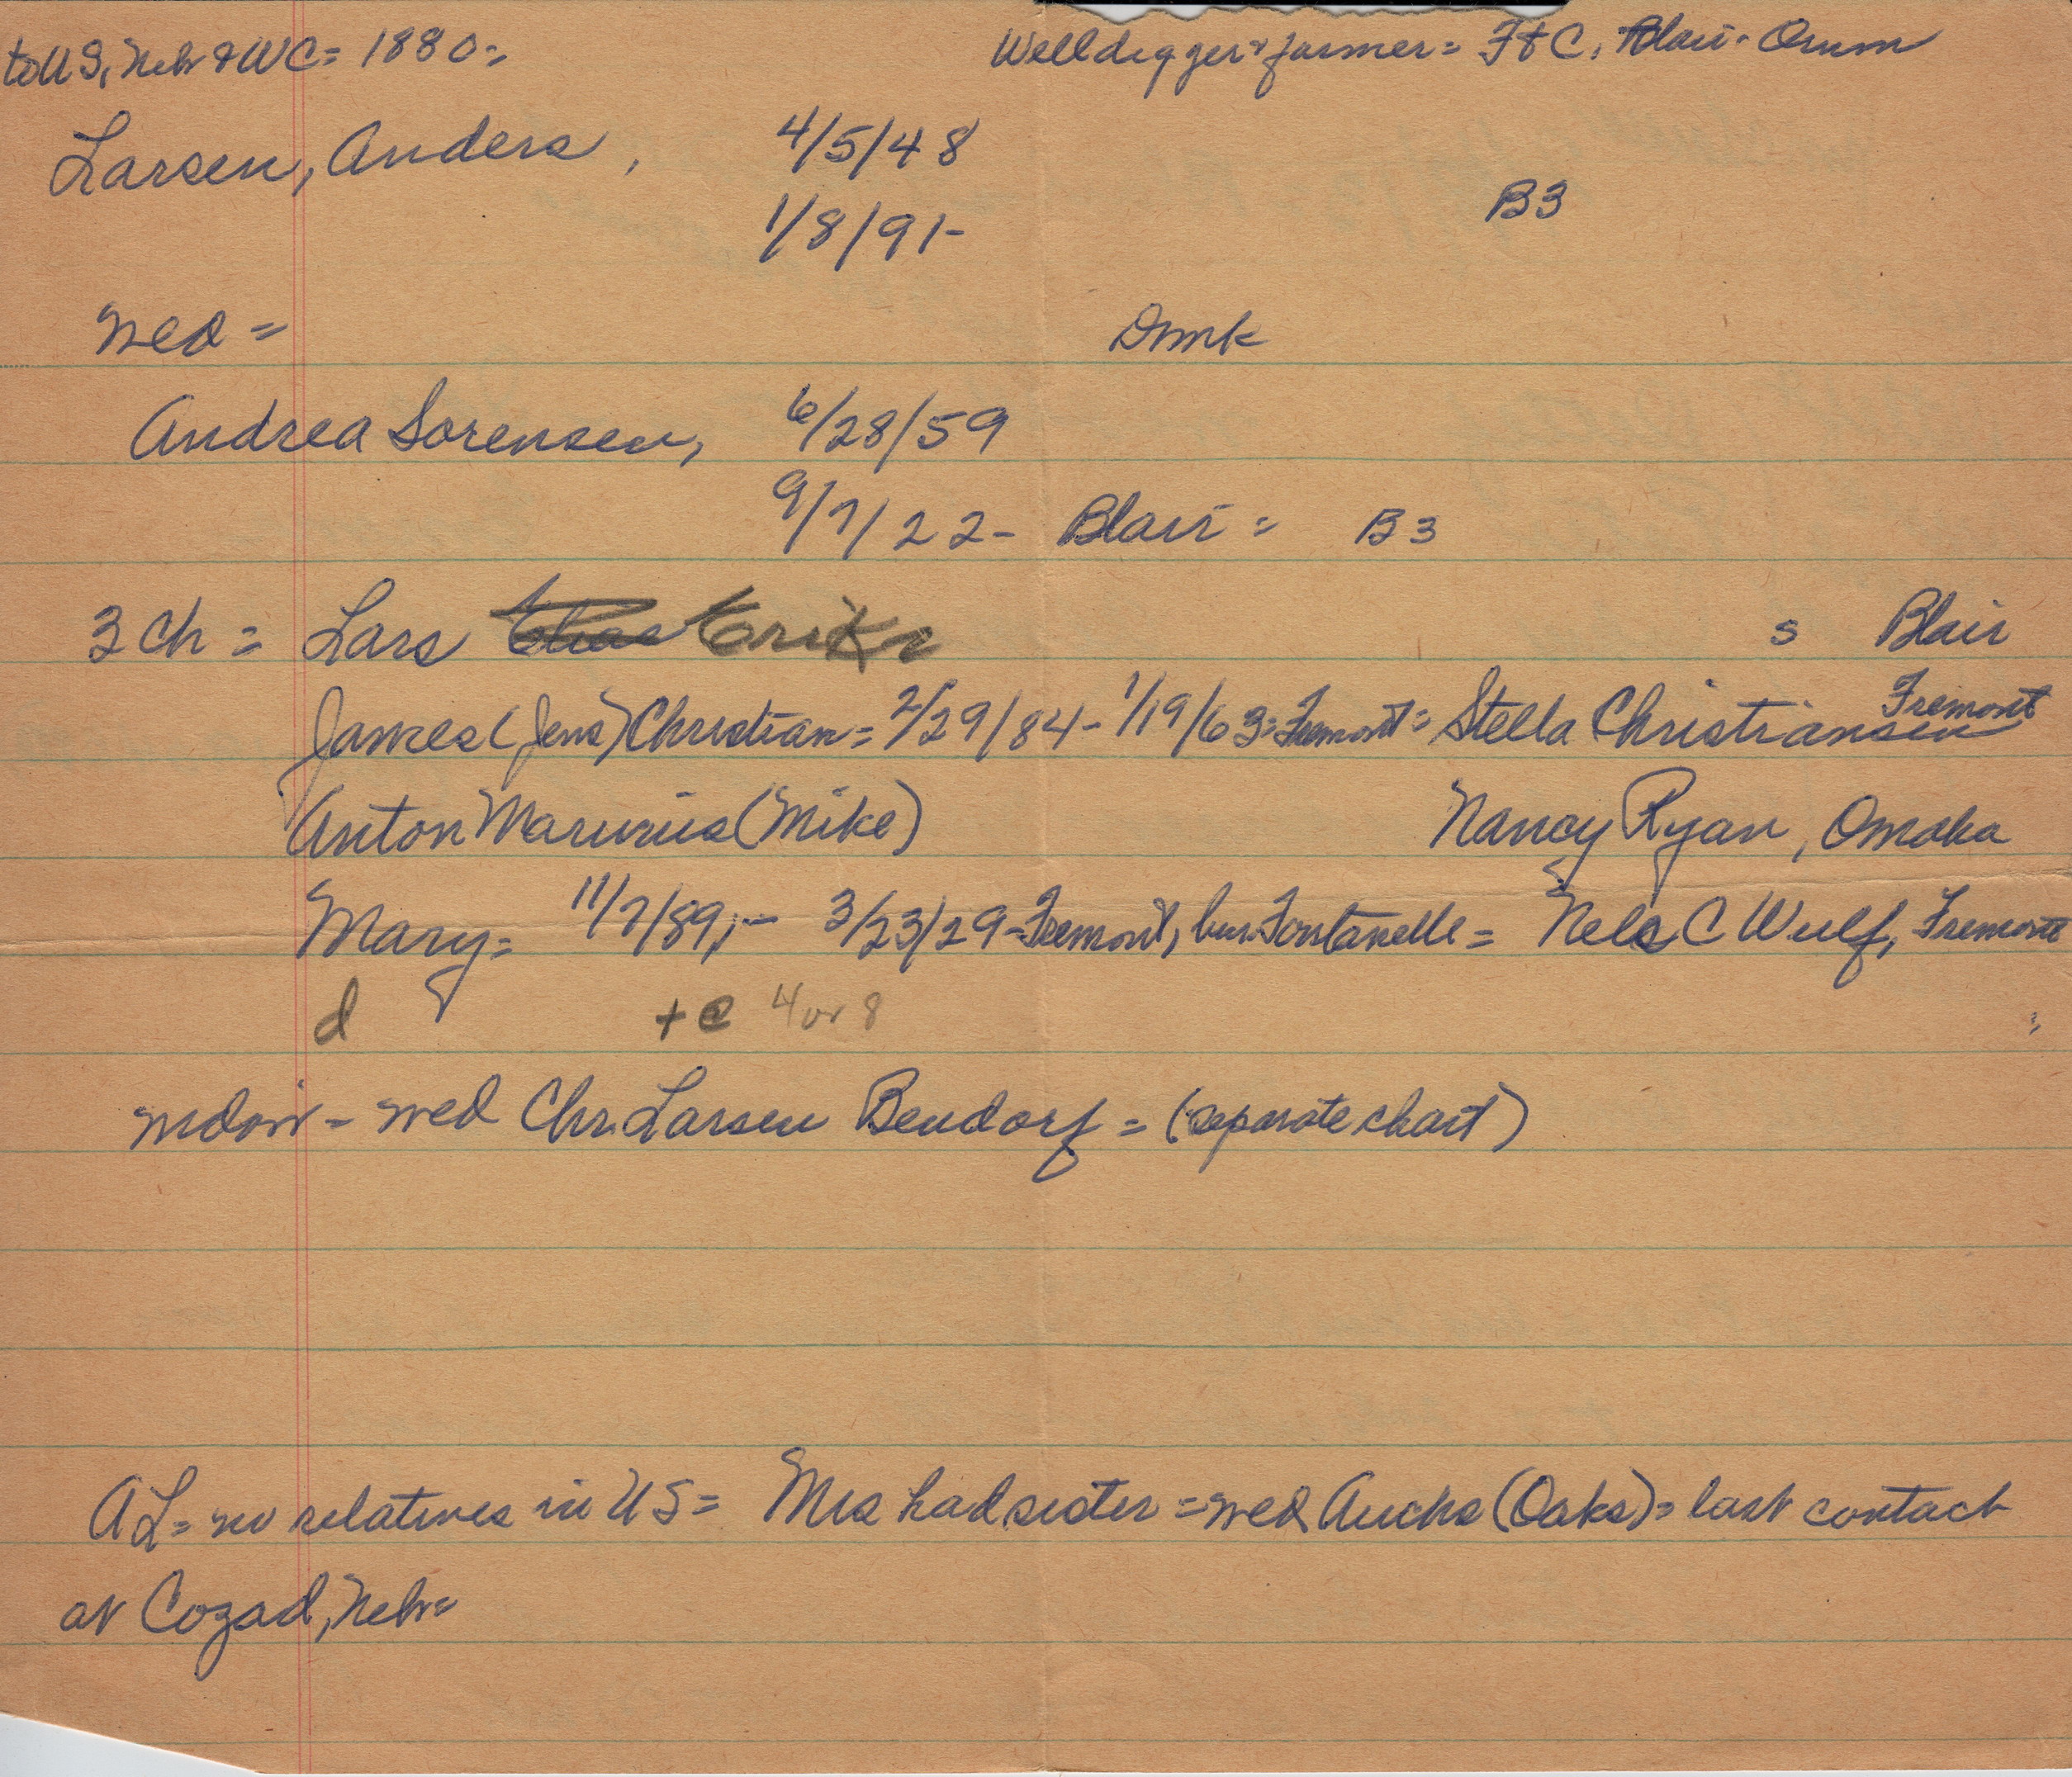 to US, Nebr & WC = 1880 = Welldigger & farmer = Ft C, Blair - Orum
Larsen, Anders, 4/5/48
1/8/91 - B3
wed = Dmk
Andrea Sorensen, 6/28/59
9/7/22 - Blair = B3
3 ch = Lars Eriks s Blair
James (Jens) Christian = 2/29/84 - 1/19/63 = Fremont = Stella Christiansen Fremont
Anton Marinus (Mike) Nancy Ryan, Omaha
Mary = 11/7/89, - 3/23/29 - Fremont, bur. Fontanelle = Nels C Wulf, Fremont
d + c 4 or 8
widow - wed Chr. Larsen Bendorf = (separate chart)
AL = no relatives in US = Mrs had sister = wed Auchs (Oaks) = last contact
at Cozad, Nebr =